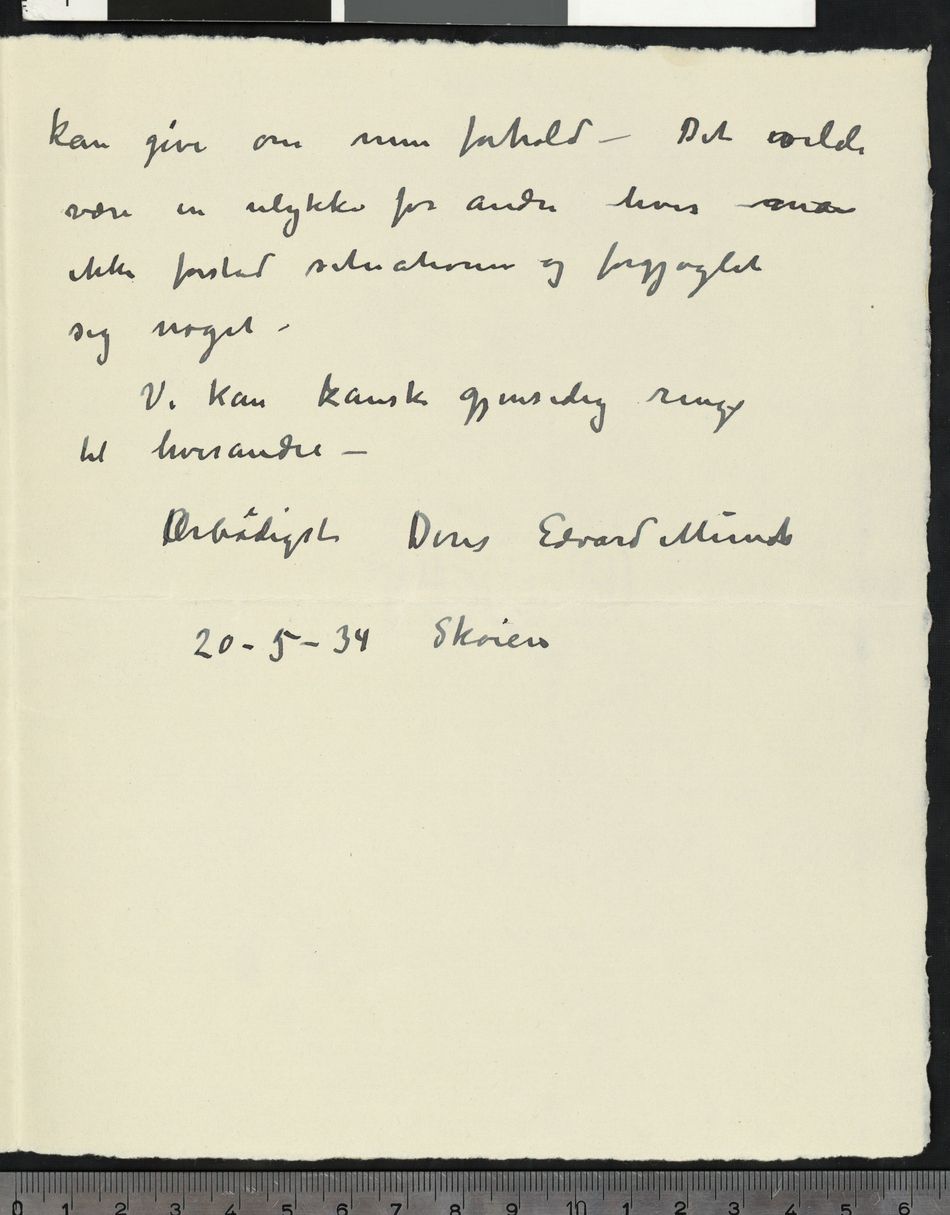 kan give om mine forhold – Det vilde
være en ulykke for andre hvis man
ikke forstod situationen og forgjøglet
sig noget –
Vi kan kanske gjensidig ringe
til hverandre –
Ærbødigst Deres Edvard Munch
20-5-34 Skøien